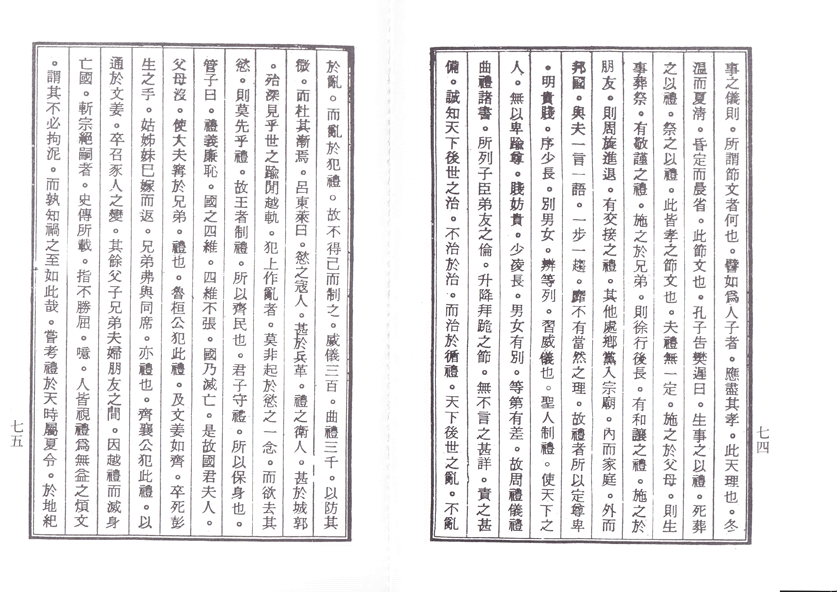 事之儀則。所謂節文者何也。譬如為人子者。應盡其孝。此天理也。冬
溫而夏凊。昏定而晨省。此節文也。孔子告樊遲曰。生事之以禮。死葬
之以禮。祭之以禮。此皆孝之節文也。夫禮無一定。施之於父母。則生
事葬祭。有敬謹之禮。施之於兄弟。則徐行後長。有和讓之禮。施之於
朋友。則周旋進退。有交接之禮。其他處鄉黨入宗廟。內而家庭。外而
邦國。與夫一言一語。一步一趨。靡不有當然之理。故禮者所以定尊卑
。明貴賤。序少長。別男女。辨等列。習威儀也。聖人制禮。使天下之
人。無以卑踰尊。賤妨貴。少凌長。男女有別。等第有差。故周禮儀禮
曲禮諸書。所列子臣弟友之倫。升降拜跪之節。無不言之甚詳。責之甚
備。誠知天下後世之治。不治於治。而治於循禮。天下後世之亂。不亂
七四
於亂。而亂於犯禮。故不得已而制之。威儀三百。曲禮三千。以防其
微。而杜其漸焉。呂東萊曰。慾之寇人。甚於兵革。禮之衛人。甚於城郭
。殆深見乎世之踰閑越軌。犯上作亂者。莫非起於慾之一念。而欲去其
慾。則莫先乎禮。故王者制禮。所以齊民也。君子守禮。所以保身也。
管子曰。禮義廉恥。國之四維。四維不張。國乃滅亡。是故國君夫人。
父母沒。使大夫寗於兄弟。禮也。魯桓公犯此禮。及文姜如齊。卒死彭
生之手。姑姊妹已嫁而返。兄弟弗與同席。亦禮也。齊襄公犯此禮。以
通於文姜。卒召豕人之變。其餘父子兄弟夫婦朋友之間。因越禮而滅身
亡國。斬宗絕嗣者。史傳所載。指不勝屈。噫。人皆視禮為無益之煩文
。謂其不必拘泥。而孰知禍之至如此哉。嘗考禮於天時屬夏令。於地紀
七五